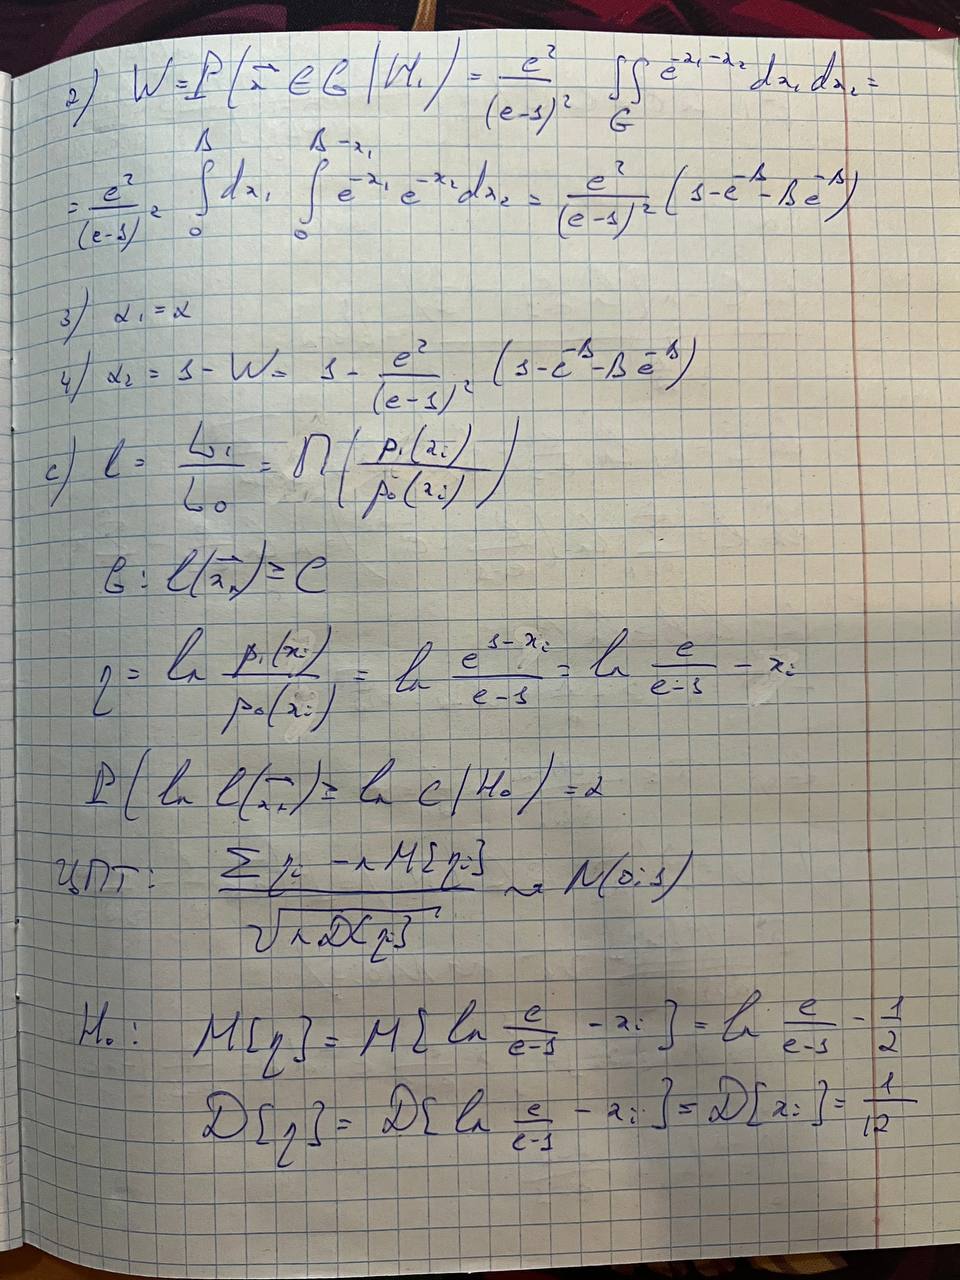 2) W = P(x⃗ ∈ G | H₁) = e²/(e-1)² ∬_G e^(-x₁-x₂) dx₁ dx₂ =
= e²/(e-1)² ∫₀^B dx₁ ∫₀^(B-x₁) e^(-x₁) e^(-x₂) dx₂ = e²/(e-1)² (1-e^(-B) - Be^(-B))
3) α₁ = α
4) α₂ = 1 - W = 1 - e²/(e-1)² (1-e^(-B) - Be^(-B))
c) l = L₁/L₀ = Π(p₁(xᵢ)/p₀(xᵢ))
G: l(x⃗ₙ) ≥ C
η = ln p₁(xᵢ)/p₀(xᵢ) = ln e^(1-xᵢ)/(e-1) = ln e/(e-1) - xᵢ
P(ln l(x⃗ₙ) ≥ ln c | H₀) = α
ЦПТ: (Σηᵢ - nM[ηᵢ])/√(nD[η]) ~ N(0;1)
H₀: M[η] = M[ln e/(e-1) - xᵢ] = ln e/(e-1) - 1/2
D[η] = D[ln e/(e-1) - xᵢ] = D[xᵢ] = 1/12